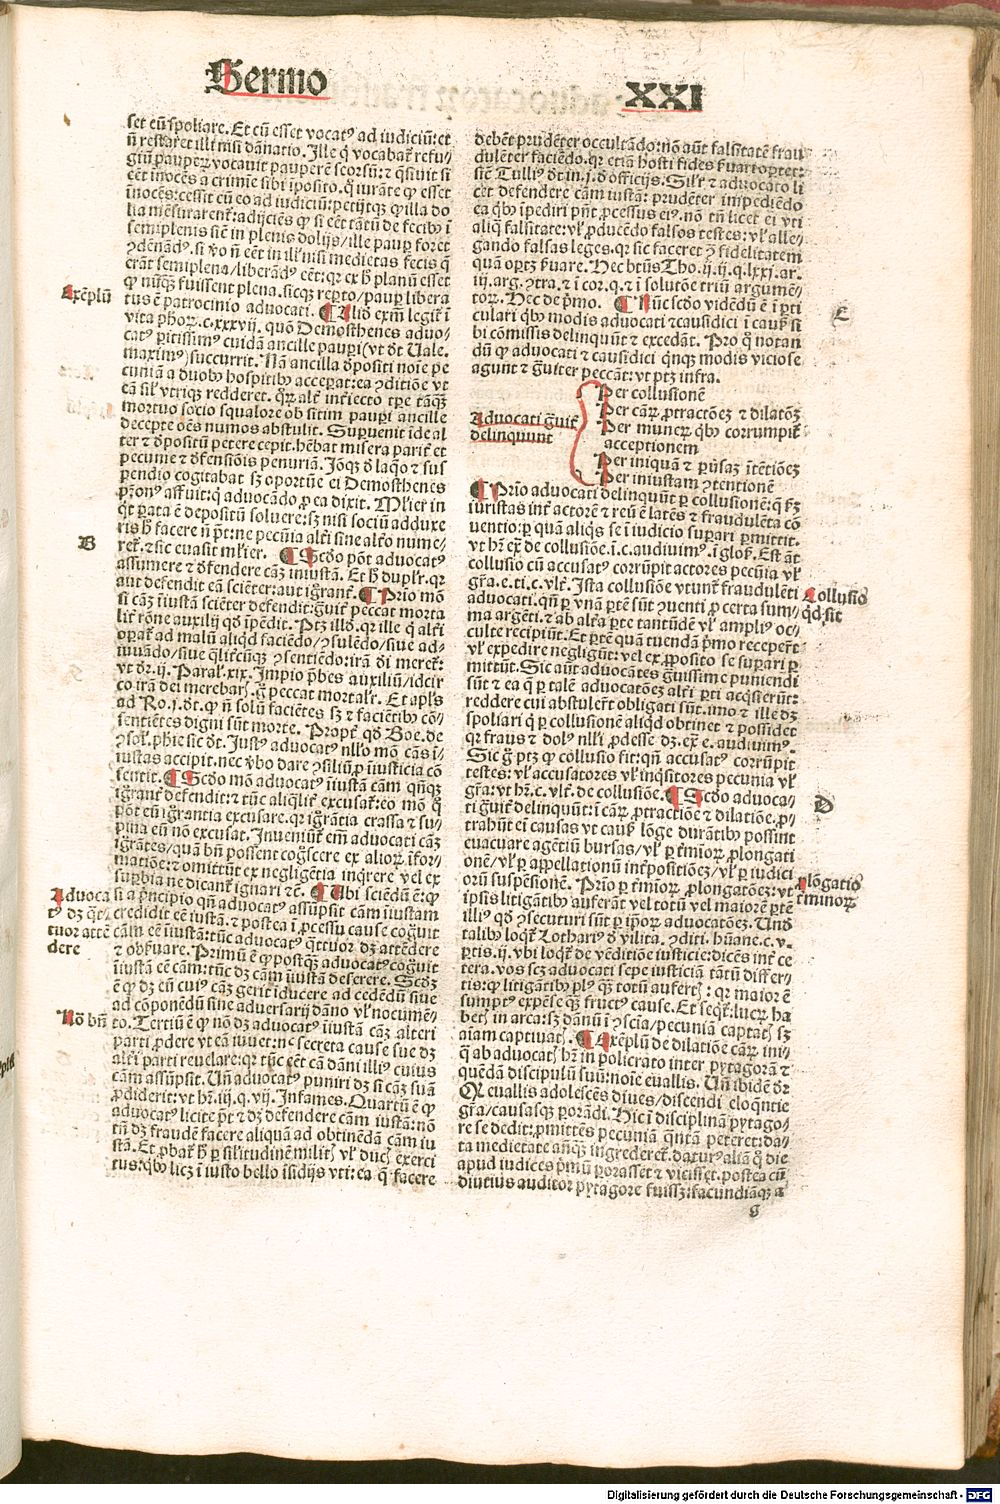 Sermo
XXI
set eū spoliare. Et cū esset vocatꝰ ad iudiciū: et
n̄ restaret illi nisi dānatio. Ille q̇ vocabat̄ refu/
giū pauperꝝ vocauit pauperē seorsū: ⁊ q̄siuit si
eēt inocēs a crimīe sibi īposito. q̇ iurāte ꝙ esset
inocēs: cessit cū eo ad iudiciū: petijtqꝫ ꝙ illa do
lia mēsurarent̄: adijciēs ꝙ si eēt tātū de fecibꝰ ī
semiplenis sic̄ in plenis dolijs/ille paup̄ foret
ꝯdēnādꝰ. si ꝟo n̄ eēt in ill' nisi medietas fecis q̄
erāt semiplena/liberādꝰ eēt: qꝛ ex h̄ planū esset
ꝙ nūqꝫ̄ fuissent plena. sicqꝫ reꝑto/paup̄ libera
tus ē patrocinio aduocati. ¶ Aliō exm̄ legit̄ ī
vita ph̄oꝝ. c. xxxvij. quō Demosthenes aduo/
catꝰ ꝑitissimꝰ cuidā ancille paupi (vt dt̄ Uale.
maximꝰ) succurrit. Nā ancilla dp̄ositi noīe pe
cuniā a duobꝰ hospitibꝰ acceꝑat: ea ꝯditiōe vt
eā sil' vtriqꝫ redderet. Qꝛ̄ alt̄ int̄iecto tꝑe tāqꝫ̄
mortuo socio squalore obsitim paupi ancille
decepte oēs numos abstulit. Superuenit ide al
ter ⁊ dp̄ositū petere cepit. hēbat misera parit̄ et
pecunie ⁊ dfensiōis penuriā. Iōqꝫ d̄ laq̄o ⁊ sus
pendio cogitabat sꝫ oportūe ei Demosthenes
pꝛōnꝰ affuit: q̇ aduocādo ꝓ ea dixit. Ml'ier in
qt̄ ꝑata ē depositū soluere: sꝫ nisi sociū adduxe
ris h̄ facere n̄ pt̄: ne pecunia alt̄i sine alt̄o nume/
ret̄. ⁊ sic euasit ml'ier. ¶ Scd̄o pōt aduocatꝰ
assumere ⁊ dfendere cāꝫ iniustā. Et h̄ dupl'r. qꝛ
aut defendit eā sciēter: aut igrant̄. ¶ Prio mō
si cāꝫ iniustā sciēter defendit: ḡuit̄ peccat morta
lit̄ rōne auxilij qd̄ ip̄edit. Ptꝫ ill'o. qꝛ ille q̇ alt̄i
oꝑat̄ ad malū aliqd̄ faciēdo/ꝯsulēdo/siue ad/
iuuādo/siue q̄lit̄cūqꝫ ꝯsentiēdo: irā di meret̄:
vt dꝛ. ij. Paral'. xix. Impio pbes auxiliū/idcir
co irā dei merebarꝭ. g̊ peccat mortal'r. Et apl's
ad Ro. j. dt̄. ꝙ n̄ solū faciētes sꝫ ⁊ faciētibꝰ cō/
sentiētes digni sūt morte. Propt̄ qd̄ Boe. de
ꝯsol'. phie sic dt̄. Iustꝰ aduocatꝰ nll'o mō cās i/
iustas accipit. nec ꝟbo dare ꝯsiliū ꝓ iniusticia cō
sentit. ¶ Scd̄o mō aduocatꝰ iniustā cām qn̄qꝫ
igrant̄ defendit: ⁊ tūc aliqlit̄ excusat̄: eo mō q̊
pōt eū igrantia excusare. qꝛ igrātia crassa ⁊ su/
pina eū nō excusat. Inueniūt̄ em̄ aduocati cāꝫ
igrātes/quā bn̄ possent cog̊scere ex alioꝝ īfor/
matiōe: ⁊ omittūt ex negligētia inqrere vel ex
suꝑbia ne dicant̄ ignari ⁊c̄. ¶ Ubi sciēdū ē: ꝙ
si a pncipio qn̄ aduocatꝰ assūpsit cām iniustam
credidit eē iustā. ⁊ postea ī ꝓcessu cause cog̊uit
cām eē iniustā: tūc aduocatꝰ q̄ttuor dꝫ attēdere
⁊ obẜuare. Primū ē ꝙ postqꝫ̄ aduocatꝰ cog̊uit
iniustā eē cām: tūc dꝫ cām iniustā deserere. Scd̄ꝫ
ē ꝙ dꝫ eū cuiꝰ cāꝫ gerit īducere ad cedēdū siue
ad cōponēdū sine aduersarij dāno vl' nocumē/
to. Tertiū ē ꝙ nō dꝫ aduocatꝰ iniustā cāꝫ alteri
parti ꝓdere vt eā iuuet: nec secreta cause sue dꝫ
alt̄i parti reuelare: qꝛ tūc eēt cā dāni illiꝰ cuius
cām assūpsit. Un̄ aduocatꝰ puniri dꝫ si cāꝫ suā
ꝓdiderit: vt hꝛ̄. iij. q. vij. Infames. Quartū ē ꝙ
aduocatꝰ licite pt̄ ⁊ dꝫ defendere cām iustā: nō
tn̄ dꝫ fraudē facere aliquā ad obtinēdā cām iu
stā. Et ꝓbat̄ h̄ ꝑ sil'itudinē militꝭ vl' ducꝭ exerci
tus: qbꝰ licꝫ ī iusto bello īsidijs vti: ea q̄ facere
Exēplū
B
Aduoca
tꝰ dꝫ q̄t
tuor attē
dere
Nō bn̄
debēt prudēter occultādo: nō aūt falsitatē frau
dulēter faciēdo. qꝛ etiā hosti fides ẜuari oꝑtet:
sic̄ Tulliꝰ dt̄ in. j. d̄ officijs. Sil'r ⁊ aduocato li
cet defendere cām iustā: prudēter impediēdo
ea qbꝰ īpediri pn̄t ꝓcessus eiꝰ. nō tn̄ licet ei vti
aliq̄ falsitate: vl' ꝓducēdo falsos testes: vl' alle/
gando falsas leges. qꝛ sic facere ē ꝯ fidelitatem
quā oportꝫ ẜuare. Hec btūs Tho. ij. ij. q. lxxj. ar.
iij. arg. ꝯtra. ⁊ ī cor. q. ⁊ ī solutōe triū argumē/
toꝝ. Hec de pmo. ¶ Nūc scd̄o vidēdū ē ī pti
culari qbꝰ modis aduocati ⁊ causidici ī cauẜ si
bi cōmissis delinquūt ⁊ excedāt. Pro q̊ notan
dū ꝙ aduocati ⁊ causidici qnqꝫ modis viciose
agunt ⁊ ḡuiter peccāt: vt ptꝫ infra.
Aduocati ḡuit̄
delinquunt
Per collusionē
Per cāꝝ ꝓtractōeꝫ ⁊ dilatōꝫ
Per muneꝝ qbꝰ corrumpit̄
acceptionem
Per iniquā ⁊ puẜaꝫ ītētiōeꝫ
Per iniustam ꝯtentionē
¶ Prio aduocati delinquūt ꝑ collusionē: q̄ ẜꝫ
iuristas int̄ actorē ⁊ reū ē latēs ⁊ fraudulēta cō
uentio: ꝑ quā aliqs se ī iudicio suꝑari ꝑmittit.
vt hꝛ̄ ex̄ de collusiōe. ī. c. audiuimꝰ. ī glos̄. Est āt
collusio cū accusatꝰ corrūpit actores pecūia vl'
gr̄a. e. ti. c. vlt̄. Ista collusiōe vtunt̄ fraudulēti
aduocati. qn̄ ꝑ vnā ꝑtē sūt ꝯuenti ꝓ certa sum/
ma argēti. ⁊ ab alt̄a ꝑte tantūdē vl' ampliꝰ oc/
culte recipiūt. Et ꝑtē quā tuendā pmo receperūt
vl' expedire negligūt: vel ex ꝓposito se suꝑari ꝑ
mittūt. Sic aūt aduocātes ḡuissime puniendi
sūt ⁊ ea q̄ ꝑ talē aduocatōeꝫ alt̄i ꝑti acqsierūt:
reddere cui abstulerūt obligati sūt. imo ⁊ ille dꝫ
spoliari q̇ ꝑ collusionē aliqd̄ obtinet ⁊ possidet
qꝛ fraus ⁊ dolꝰ nll'i ꝓdesse dꝫ. ex̄ e. audiuimꝰ.
Sic g̊ ptꝫ ꝙ collusio fit: qn̄ accusatꝰ corrūpit
testes: vl' accusatores vl' inqsitores pecunia vl'
gr̄a: vt hꝛ̄. c. vlt̄. de collusiōe. ¶ Scd̄o aduoca/
ti ḡuit̄ delinquūt: ī cāꝝ ꝓtractiōe ⁊ dilatiōe. ꝓ/
trahūt ei causas vt cauẜ lōge durātibꝰ possint
euacuare agentiū bursas/ vl' ꝑ t̄mioꝝ ꝓlongati
onē/vl' ꝑ appellationū int̄positōeꝫ/vl' ꝑ iudici
orū suspēsionē. Prio ꝑ t̄mioꝝ ꝓlongatōeꝫ: vt
ipsis litigātibꝰ auferāt vel totū vel maiorē ꝑtē
illiꝰ qd̄ ꝯsecuturi sūt ꝑ ipoꝝ aduocatōeꝫ. Und̄
talibꝰ loqt̄ Lothariꝰ d̄ vilita. ꝯditi. hūane. c. v.
ꝑtis. ij. vbi loqt̄ de vēditiōe iusticie: dicēs int̄ ce
tera. vos scꝫ aduocati sepe iusticiā tātū differ/
tis: ꝙ litigātibꝰ plꝰ qꝫ̄ totū auferꝭ: qꝛ maior ē
sumptꝰ expēse qꝫ̄ fructꝰ cause. Et seqt̄: lucꝝ ha
betꝭ in arca: sꝫ dānū ī ꝯscia/pecuniā captatꝭ sꝫ
aīam captiuatꝭ. ¶ Exēplū de dilatiōe cāꝝ ini/
q̄ ab aduocatꝭ hꝛ̄ in policrato inter pytagorā ⁊
quēdā discipulū suū: noīe euallis. Un̄ ibidē dꝛ̄
Qꝛ euallis adolescēs diues/discendi eloq̄ntie
gr̄a/causasqꝫ ꝑorādi. Hic ī disciplinā pytago/
re se dedit: ꝓmittēs pecuniā q̄ntā peteret: da/
ta medietate an̄qꝫ̄ ingrederet̄. daturꝰ aliā q̊ die
apud iudices pmū ꝑorasset ⁊ vicisset. postea cū
diutius auditor pytagore fuissꝫ: facundiāqꝫ ⁊
g
C
Collusio
qd̄ sit
D
Plōgatio
t̄minoꝝ
Digitalisierung gefördert durch die Deutsche Forschungsgemeinschaft - DFG